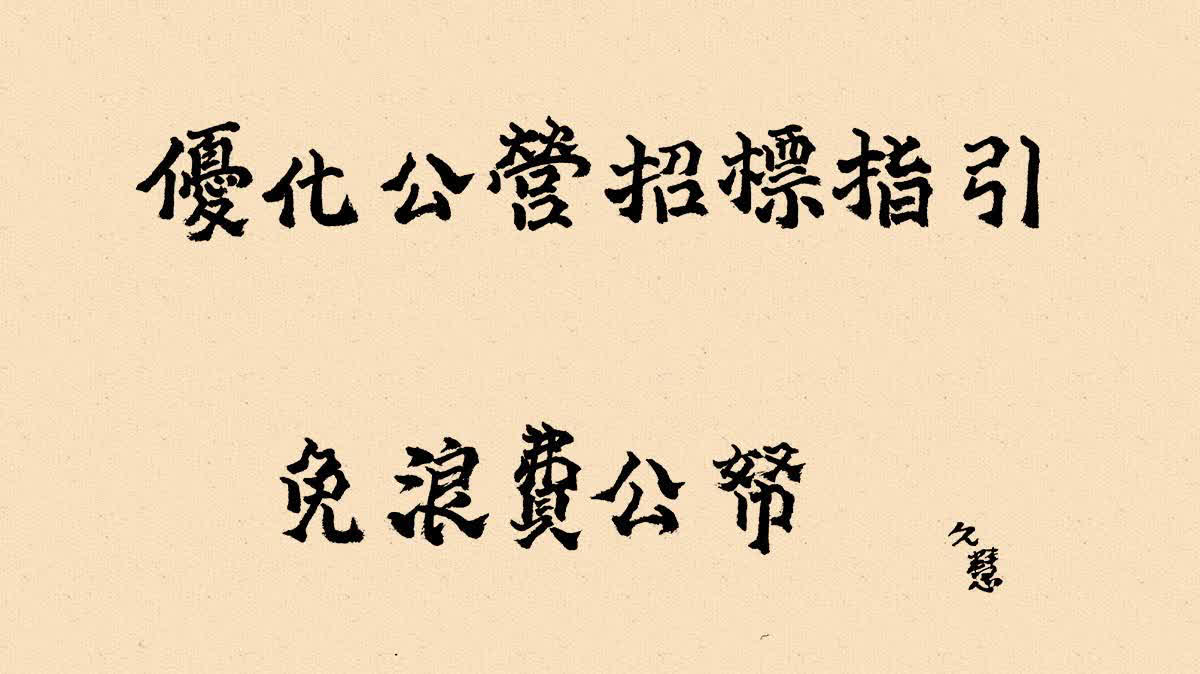 優化公營招標指引
免浪費公帑
久慧